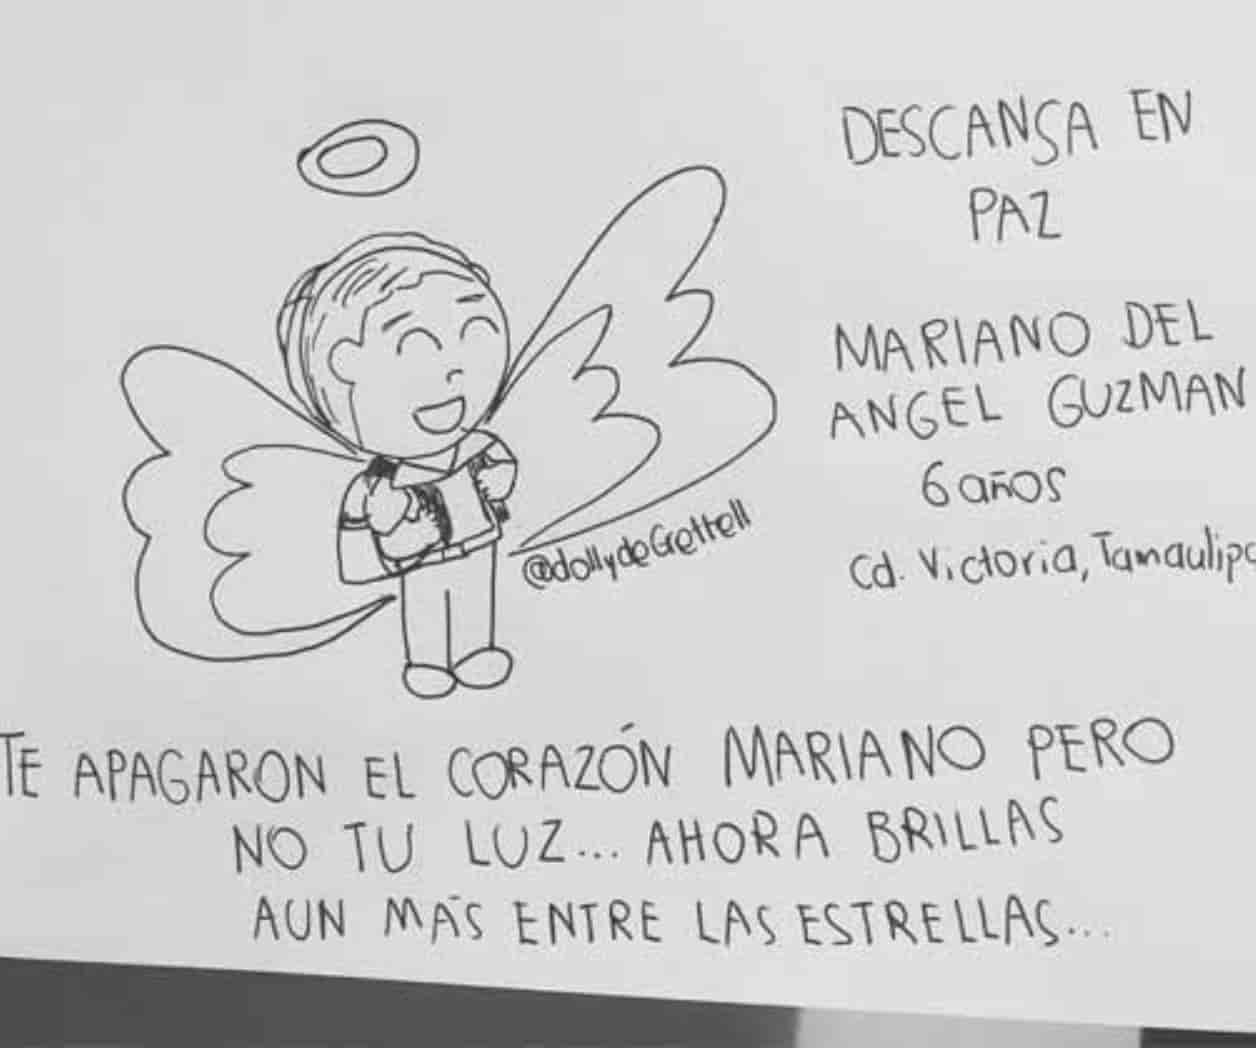 DESCANSA EN
PAZ
MARIANO DEL
ANGEL GUZMAN
6 años
Cd. Victoria, Tamaulipa
@dollydeGrettell
TE APAGARON EL CORAZÓN MARIANO PERO
NO TU LUZ... AHORA BRILLAS
AUN MÁS ENTRE LAS ESTRELLAS...